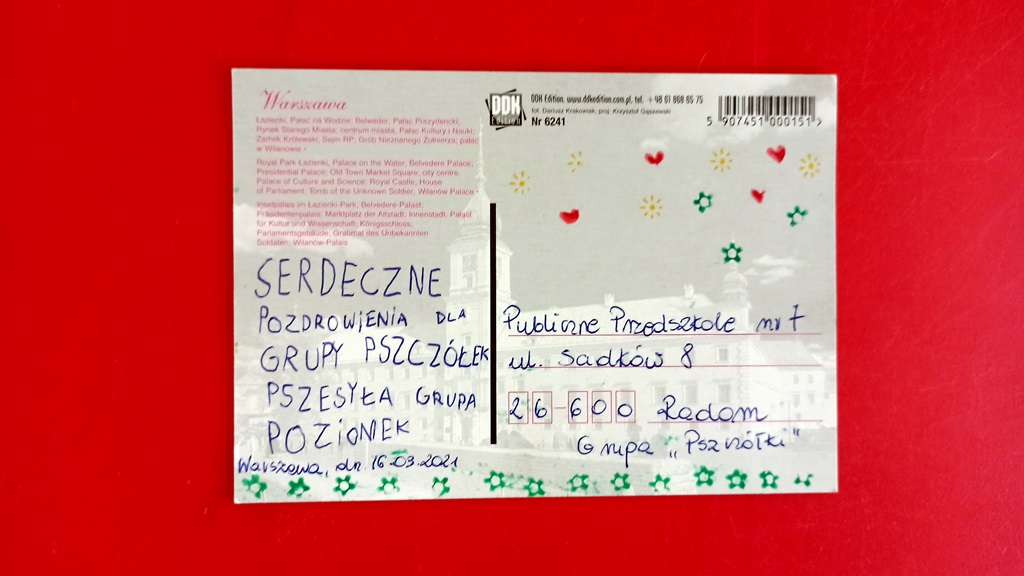 Warszawa
Łazienki, Pałac na Wodzie; Belweder; Pałac Prezydencki;
Rynek Starego Miasta; centrum miasta; Pałac Kultury i Nauki;
Zamek Królewski; Sejm RP; Grób Nieznanego Żołnierza; pałac
w Wilanowie •
Royal Park Łazienki, Palace on the Water; Belvedere Palace;
Presidential Palace; Old Town Market Square; city centre;
Palace of Culture and Science; Royal Castle; House
of Parliament; Tomb of the Unknown Soldier; Wilanów Palace •
Inselpalais im Łazienki-Park; Belvedere-Palast;
Präsidentenpalais; Marktplatz der Altstadt; Innenstadt; Palast
für Kultur und Wissenschaft; Königsschloss;
Parlamentsgebäude; Grabmal des Unbekannten
Soldaten; Wilanów-Palais
SERDECZNE
POZDROWIENIA DLA
GRUPY PSZCZÓŁEK
PSZESYŁA GRUPA
POZIOMEK
Warszawa, dn. 16.03.2021
DDK
DDK Edition, www.ddkedition.com.pl, tel. + 48 61 868 65 75
fot. Dariusz Krakowiak, proj. Krzysztof Gąszewski
Nr 6241
5 907451 000151 >
Publiczne Przedszkole nr 7
ul. Sadków 8
26-600 Radom
Grupa „Pszczółki"